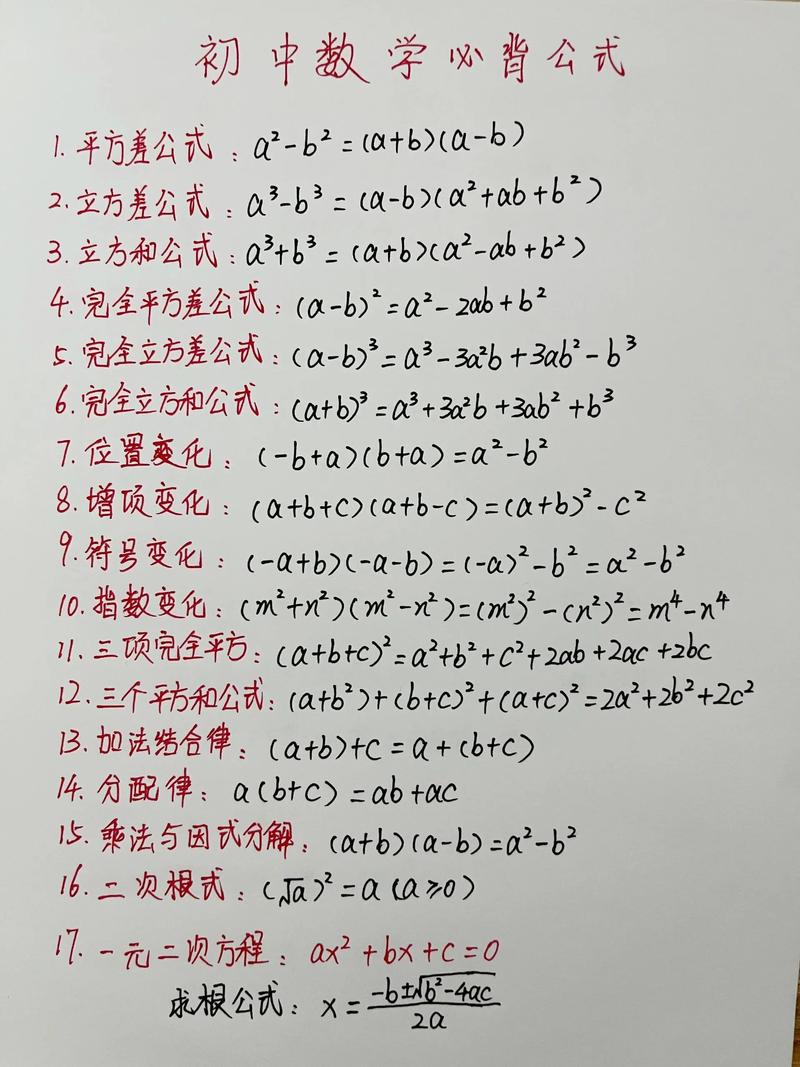 初中数学必背公式
1. 平方差公式：a²-b²=(a+b)(a-b)
2. 立方差公式：a³-b³=(a-b)(a²+ab+b²)
3. 立方和公式：a³+b³=(a+b)(a²-ab+b²)
4. 完全平方差公式：(a-b)²=a²-2ab+b²
5. 完全立方差公式：(a-b)³=a³-3a²b+3ab²-b³
6. 完全立方和公式：(a+b)³=a³+3a²b+3ab²+b³
7. 位置变化：(-b+a)(b+a)=a²-b²
8. 增项变化：(a+b+c)(a+b-c)=(a+b)²-c²
9. 符号变化：(-a+b)(-a-b)=(-a)²-b²=a²-b²
10. 指数变化：(m²+n²)(m²-n²)=(m²)²-(n²)²=m⁴-n⁴
11. 三项完全平方：(a+b+c)²=a²+b²+c²+2ab+2ac+2bc
12. 三个平方和公式：(a+b²)+(b+c)²+(a+c)²=2a²+2b²+2c²
13. 加法结合律：(a+b)+c=a+(b+c)
14. 分配律：a(b+c)=ab+ac
15. 乘法与因式分解：(a+b)(a-b)=a²-b²
16. 二次根式：(√a)²=a(a≥0)
17. 一元二次方程：ax²+bx+c=0
求根公式：x=(-b±√(b²-4ac))/2a